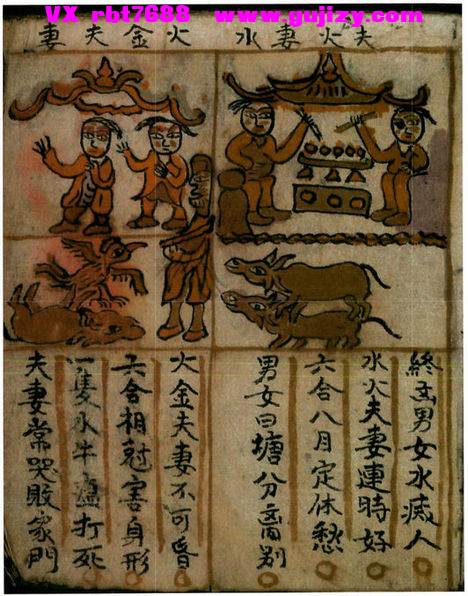 VX rbt7688 www.gujizy.com
夫火妻水
火金夫妻
終男女水滅人
水火夫妻連時好
六合八月定休愁
男女曰塘分离別
火金夫妻不可昏
六合相尅害身形
一隻水牛打死
夫妻常哭敗家門